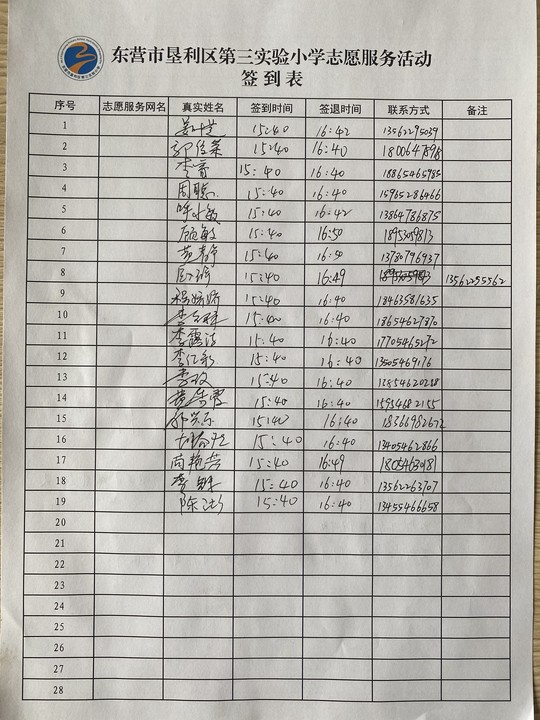 东营市垦利区第三实验小学志愿服务活动
签到表
序号 志愿服务网名 真实姓名 签到时间 签退时间 联系方式 备注
1 15:40 16:42 13562295039
2 15:40 16:40
3 李 15:40 16:40 18865465985
4 周聪 15:40 16:40 15965286466
5 15:40 16:42 13864786875
6 顾敏 15:40 16:50 18953059813
7 黄静 15:40 16:50 13780796937
8 15:40 16:49 13562295562
9 15:40 16:40 18463581635
10 15:40 16:40 18654627370
11 李露洁 15:40 16:40 17705465272
12 李仁彩 15:40 16:40 13505469176
13 李政 15:40 16:40
14 15:40 16:40 15934682155
15 郭 15:40 16:40 18366982672
16 15:40 16:40 13405462866
17 尚艳芳 15:40 16:49
18 李 15:40 16:40 13562263707
19 陈 15:40 16:40 13455466658
20
21
22
23
24
25
26
27
28